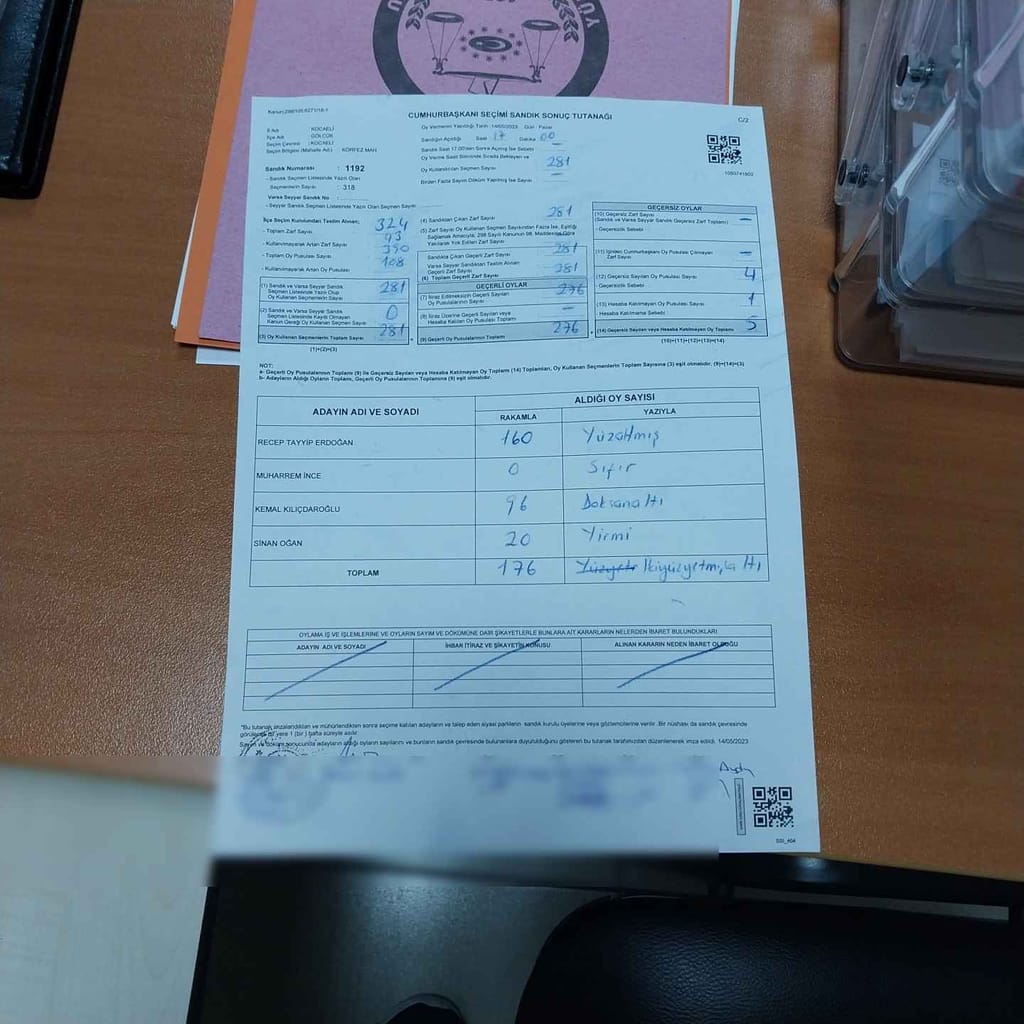 Kanun:298/105;6271/18-1
CUMHURBAŞKANI SEÇİMİ SANDIK SONUÇ TUTANAĞI
C/2
İl Adı : KOCAELİ
İlçe Adı : GÖLCÜK
Seçim Çevresi : KOCAELİ
Seçim Bölgesi (Mahalle Adı) : KÖRFEZ MAH.
Sandık Numarası : 1192
- Sandık Seçmen Listesinde Yazılı Olan
Seçmenlerin Sayısı : 318
Varsa Seyyar Sandık No :
- Seyyar Sandık Seçmen Listesinde Yazılı Olan Seçmen Sayısı :
Oy Vermenin Yapıldığı Tarih : 14/05/2023 Gün : Pazar
Sandığın Açıldığı Saat 17 Dakika 00
Sandık Saat 17.00'den Sonra Açılmış İse Sebebi —
Oy Verme Saati Bitiminde Sırada Bekleyen ve
Oy Kullandırılan Seçmen Sayısı 281
Birden Fazla Sayım Döküm Yapılmış İse Sayısı —
İlçe Seçim Kurulundan Teslim Alınan;
- Toplam Zarf Sayısı 324
- Kullanılmayarak Artan Zarf Sayısı 43
- Toplam Oy Pusulası Sayısı 390
- Kullanılmayarak Artan Oy Pusulası 108
(1) Sandık ve Varsa Seyyar Sandık
Seçmen Listesinde Yazılı Olup
Oy Kullanan Seçmenlerin Sayısı 281
(2) Sandık ve Varsa Seyyar Sandık
Seçmen Listesinde Kayıtlı Olmayan
Kanun Gereği Oy Kullanan Seçmen Sayısı 0
(3) Oy Kullanan Seçmenlerin Toplam Sayısı 281
(1)+(2)=(3)
(4) Sandıktan Çıkan Zarf Sayısı 281
(5) Zarf Sayısı Oy Kullanan Seçmen Sayısından Fazla İse, Eşitliği
Sağlamak Amacıyla; 298 Sayılı Kanunun 98. Maddesine Göre
Yakılarak Yok Edilen Zarf Sayısı —
Sandıkta Çıkan Geçerli Zarf Sayısı 281
Varsa Seyyar Sandıktan Teslim Alınan
Geçerli Zarf Sayısı
(6) Toplam Geçerli Zarf Sayısı 281
GEÇERLİ OYLAR
(7) İtiraz Edilmeksizin Geçerli Sayılan
Oy Pusulalarının Sayısı 276
(8) İtiraz Üzerine Geçerli Sayılan veya
Hesaba Katılan Oy Pusulası Toplam —
(9) Geçerli Oy Pusulalarının Toplamı 276
GEÇERSİZ OYLAR
(10) Geçersiz Zarf Sayısı
(Sandık ve Varsa Seyyar Sandık Geçersiz Zarf Toplamı) —
- Geçersizlik Sebebi
(11) İçinden Cumhurbaşkanı Oy Pusulası Çıkmayan
Zarf Sayısı —
(12) Geçersiz Sayılan Oy Pusulası Sayısı 4
- Geçersizlik Sebebi :
(13) Hesaba Katılmayan Oy Pusulası Sayısı 1
- Hesaba Katılmama Sebebi :
(14) Geçersiz Sayılan veya Hesaba Katılmayan Oy Toplamı 5
(10)+(11)+(12)+(13)=(14)
NOT:
a- Geçerli Oy Pusulalarının Toplamı (9) ile Geçersiz Sayılan veya Hesaba Katılmayan Oy Toplamı (14) Toplamları, Oy Kullanan Seçmenlerin Toplam Sayısına (3) eşit olmalıdır. (9)+(14)=(3)
b- Adayların Aldığı Oyların Toplamı, Geçerli Oy Pusulalarının Toplamına (9) eşit olmalıdır.
ADAYIN ADI VE SOYADI ALDIĞI OY SAYISI
RAKAMLA YAZIYLA
RECEP TAYYİP ERDOĞAN 160 Yüzatmış
MUHARREM İNCE 0 Sıfır
KEMAL KILIÇDAROĞLU 96 Doksanaltı
SİNAN OĞAN 20 Yirmi
TOPLAM 176 Yüzyetr İkiyüzyetmişaltı
OYLAMA İŞ VE İŞLEMLERİNE VE OYLARIN SAYIM VE DÖKÜMÜNE DAİR ŞİKAYETLERLE BUNLARA AİT KARARLARIN NELERDEN İBARET BULUNDUKLARI
ADAYIN ADI VE SOYADI İHBAR İTİRAZ VE ŞİKAYETİN KONUSU ALINAN KARARIN NEDEN İBARET OLDUĞU
*Bu tutanak imzalandıktan ve mühürlendikten sonra seçime katılan adayların ve talep eden siyasi partilerin sandık kurulu üyelerine veya gözlemcilerine verilir. Bir nüshası da sandık çevresinde
görülecek bir yere 1 (bir) hafta süreyle asılır.
Sayım ve döküm sonucunda adayların aldığı oyların sayılarını ve bunların sandık çevresinde bulunanlara duyurulduğunu gösteren bu tutanak tarafımızdan düzenlenerek imza edildi. 14/05/2023